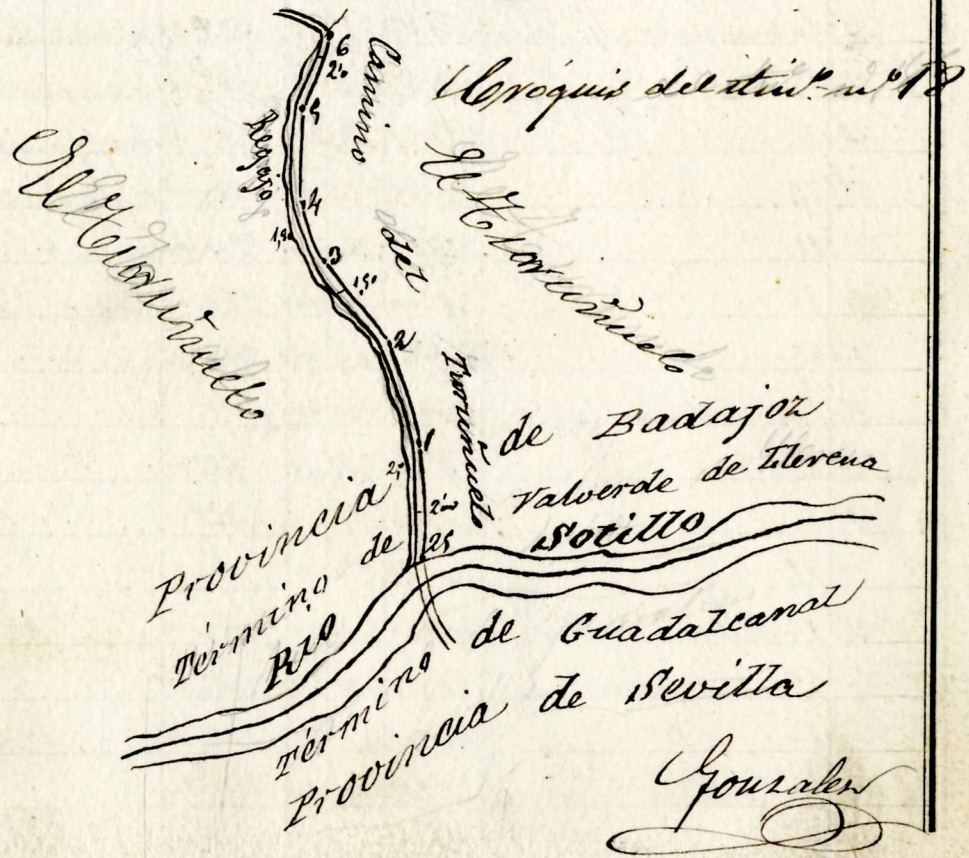 Cróquis del itin.º n.º 18
6
2,º
5
Camino del Turuñuelo
Regajo
El Turuñuelo
El Turuñuelo
4
1,80
3
1,50
2
1
2,º
2,00
25
Provincia de Badajoz
Término de Valverde de Llerena
Río Sotillo
Término de Guadalcanal
Provincia de Sevilla
Gonzalez